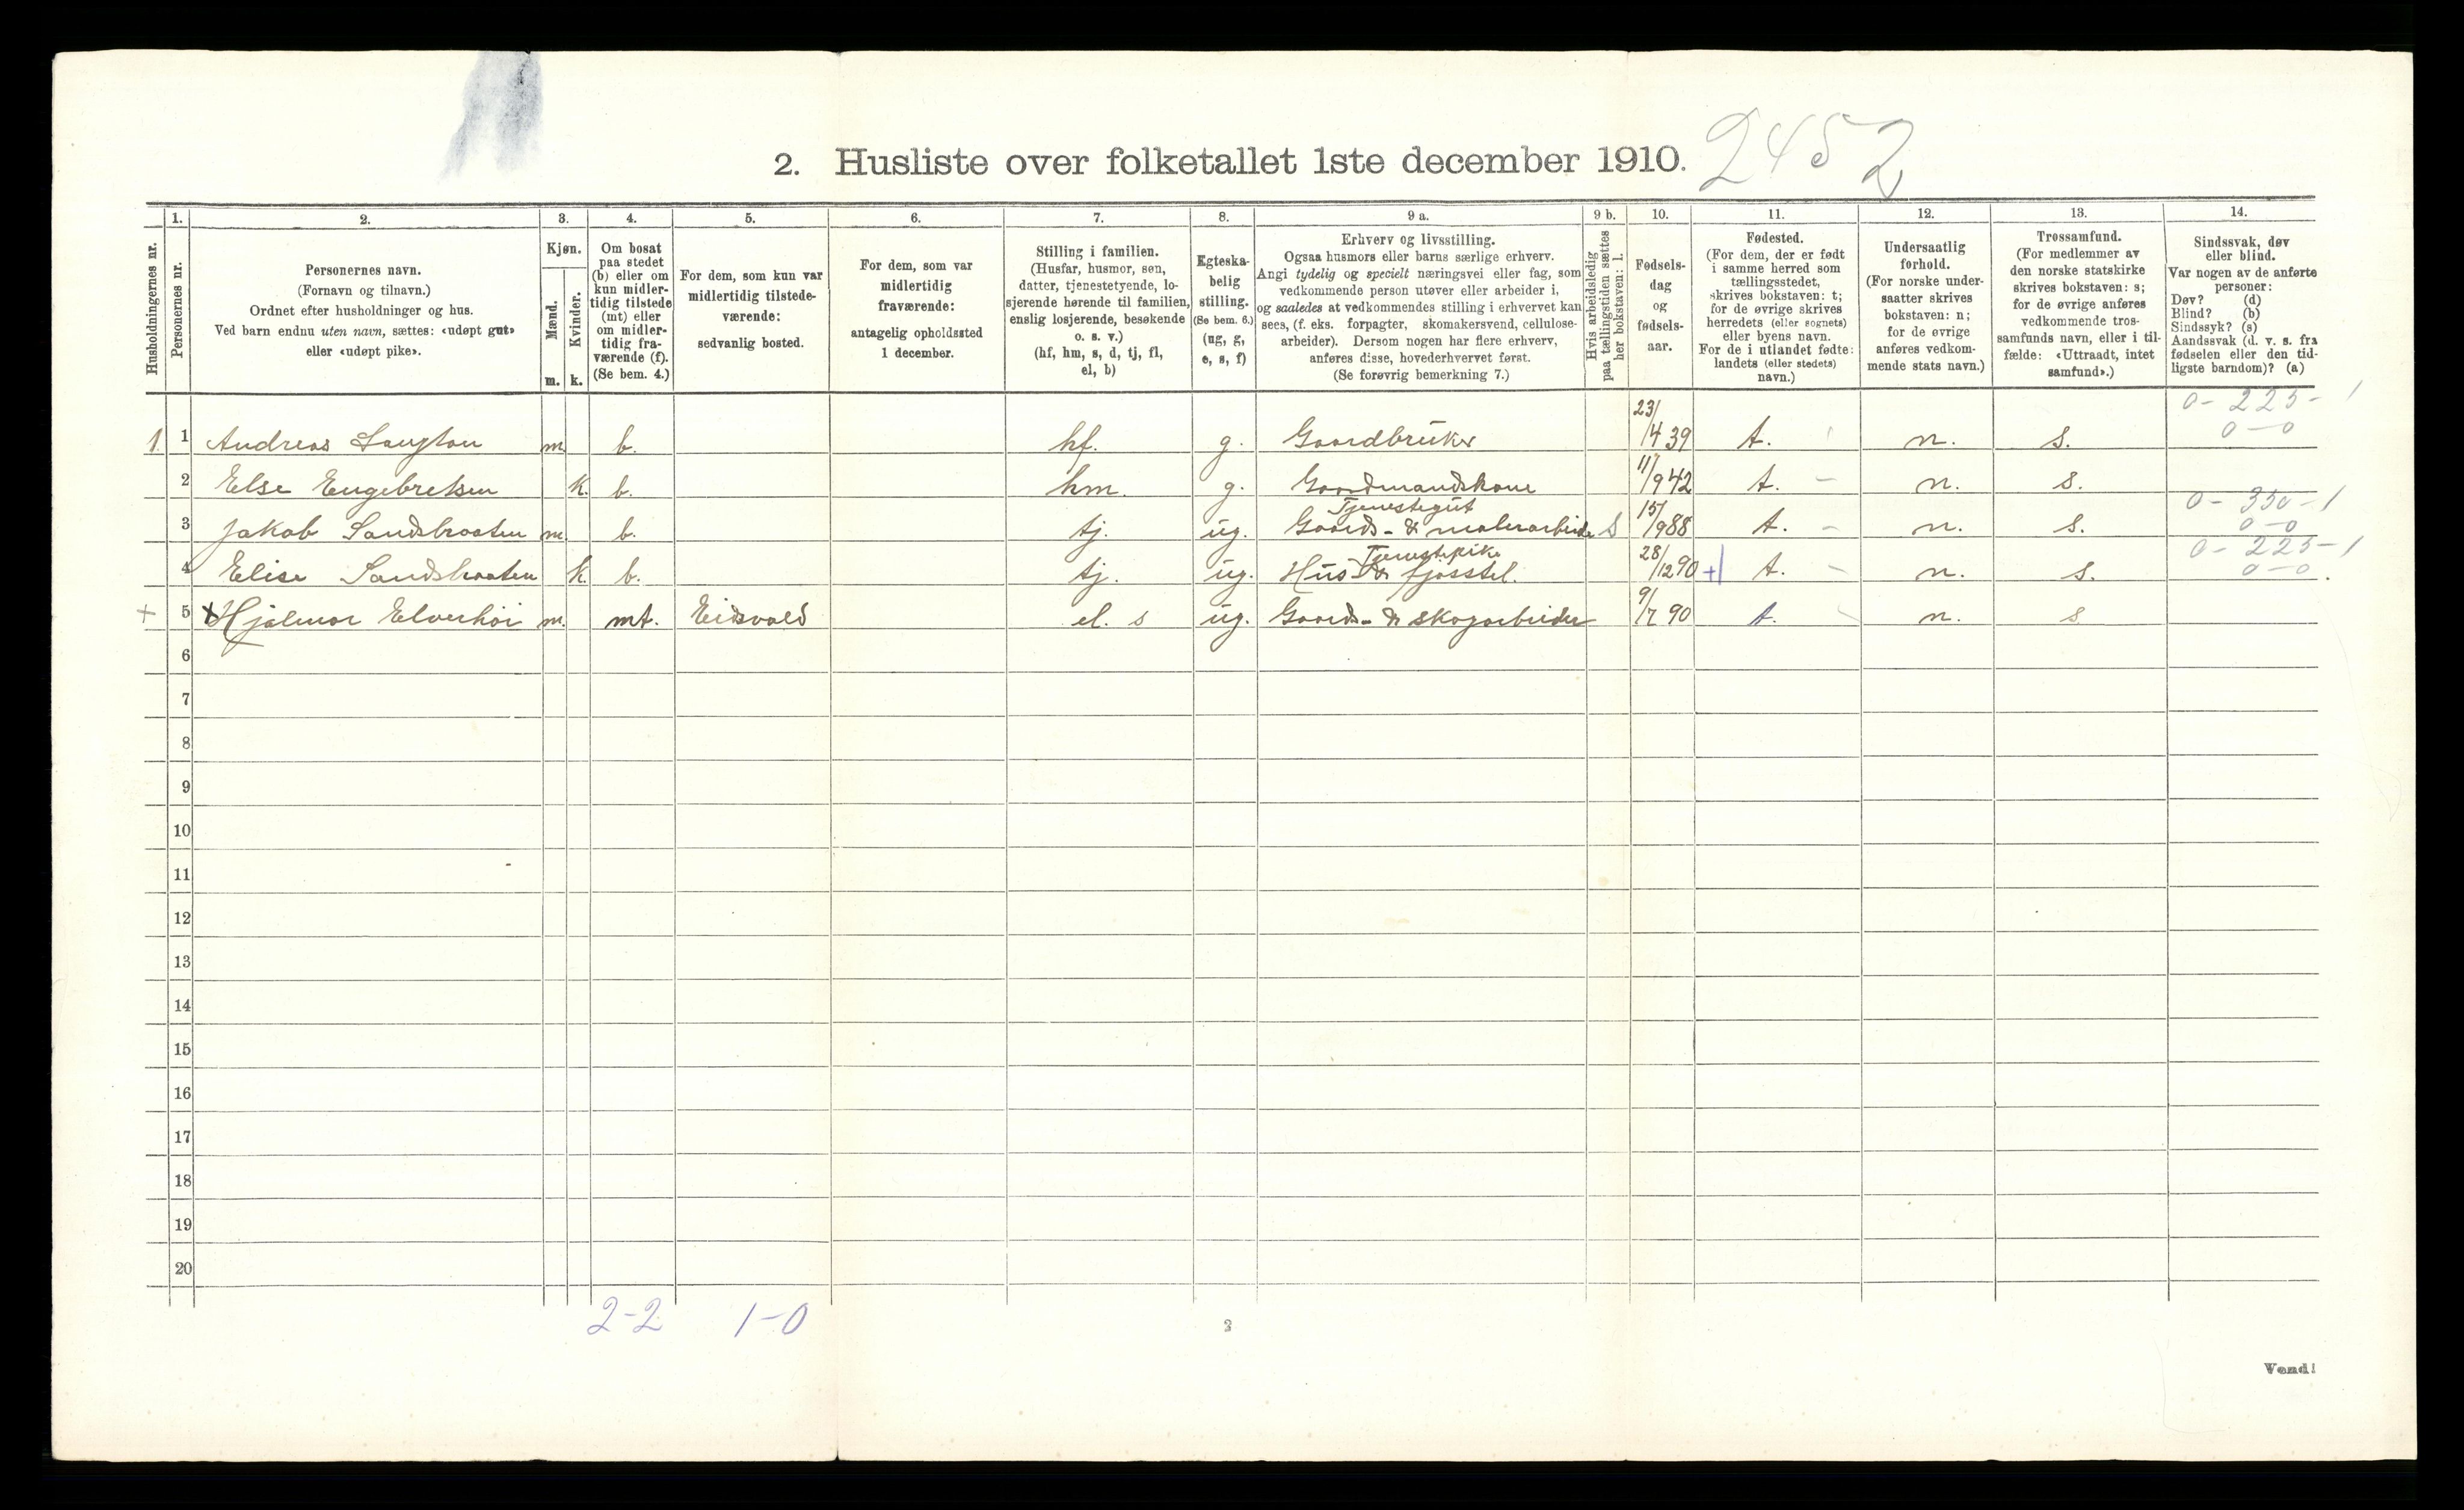 2. Husliste over folketallet 1ste december 1910. 2452
1. 2. 3. 4. 5. 6. 7. 8. 9 a. 9 b. 10. 11. 12. 13. 14.
Husholdningernes nr.
Personernes nr.
Personernes navn.
(Fornavn og tilnavn.)
Ordnet efter husholdninger og hus.
Ved barn endnu uten navn, sættes: «udøpt gut»
eller «udøpt pike».
Kjøn.
Mænd. m.
Kvinder. k.
Om bosat
paa stedet
(b) eller om
kun midler-
tidig tilstede
(mt) eller
om midler-
tidig fra-
værende (f).
(Se bem. 4.)
For dem, som kun var
midlertidig tilstede-
værende:
sedvanlig bosted.
For dem, som var
midlertidig
fraværende:
antagelig opholdssted
1 december.
Stilling i familien.
(Husfar, husmor, søn,
datter, tjenestetyende, lo-
sjerende hørende til familien,
enslig losjerende, besøkende
o. s. v.)
(hf, hm, s, d, tj, fl,
el, b)
Egteska-
belig
stilling.
(Se bem. 6.)
(ug, g,
e, s, f)
Erhverv og livsstilling.
Ogsaa husmors eller barns særlige erhverv.
Angi tydelig og specielt næringsvei eller fag, som
vedkommende person utøver eller arbeider i,
og saaledes at vedkommendes stilling i erhvervet kan
sees, (f. eks. forpagter, skomakersvend, cellulose-
arbeider). Dersom nogen har flere erhverv,
anføres disse, hovederhvervet først.
(Se forøvrig bemerkning 7.)
Hvis arbeidsledig
paa tællingstiden sættes
her bokstaven: l.
Fødsels-
dag
og
fødsels-
aar.
Fødested.
(For dem, der er født
i samme herred som
tællingsstedet,
skrives bokstaven: t;
for de øvrige skrives
herredets (eller sognets)
eller byens navn.
For de i utlandet fødte:
landets (eller stedets)
navn.)
Undersaatlig
forhold.
(For norske under-
saatter skrives
bokstaven: n;
for de øvrige
anføres vedkom-
mende stats navn.)
Trossamfund.
(For medlemmer av
den norske statskirke
skrives bokstaven: s;
for de øvrige anføres
vedkommende tros-
samfunds navn, eller i til-
fælde: «Uttraadt, intet
samfund».)
Sindssvak, døv
eller blind.
Var nogen av de anførte
personer:
Døv? (d)
Blind? (b)
Sindssyk? (s)
Aandssvak (d. v. s. fra
fødselen eller den tid-
ligste barndom)? (a)
0 - 225 - 1
1. 1 Andreas m. b. hf. g. Gaardbruker 23/4 39 t. n. s. 0-0
2 Else Engebretsen k. b. hm. g. Gaardmandskone 11/9 42 t. - n. s.
Tjenestegut 0 - 350 - 1
3 Jakob Sandbraaten m. b. tj. ug. Gaards- & malerarbeide s 15/9 88 t. - n. s. 0-0
Tjenestepike 0 - 225 - 1
4 Elise Sandbraaten k. b. tj. ug. Hus- & fjosstel. 28/12 90 + t. - n. s. 0-0.
+ 5 x Hjalmar Elverhøi m. mt. Eidsvold el. s ug. Gaards- & skogarbeider 9/7 90 t. - n. s
6
7
8
9
10
11
12
13
14
15
16
17
18
19
20
2-2 1-0
2
Vend!